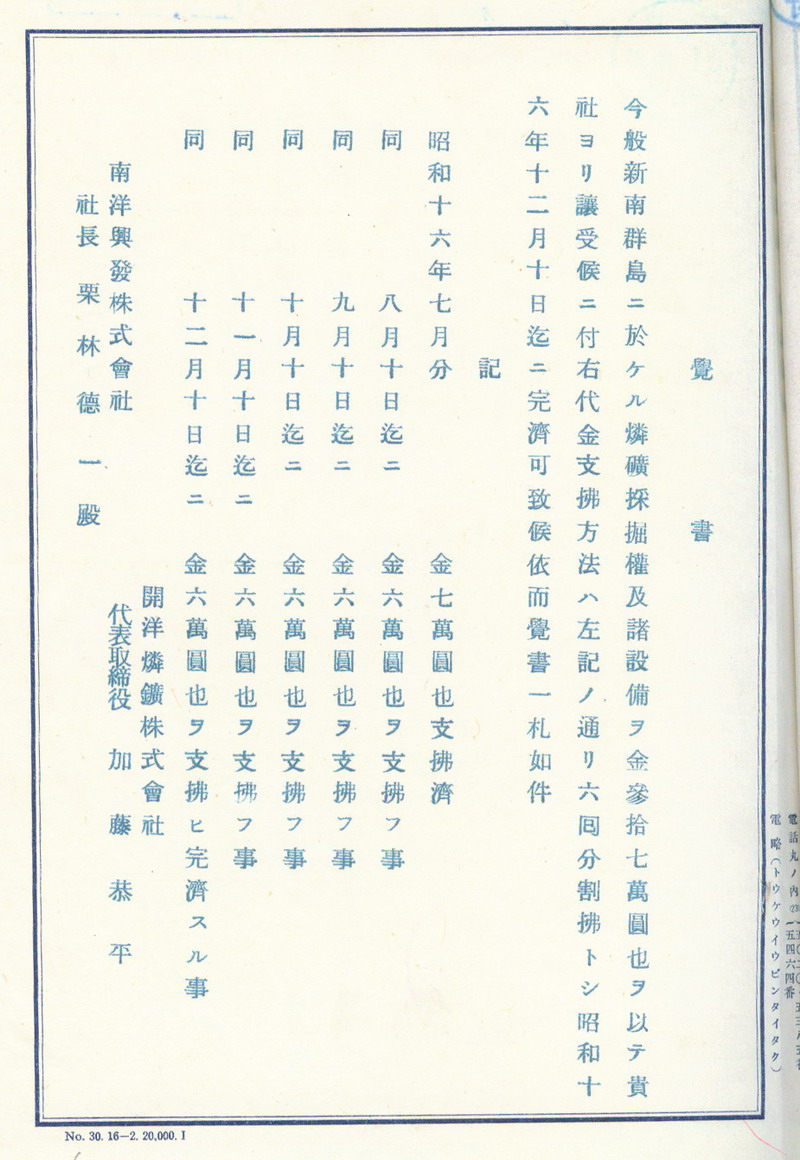 覺書
今般新南群島ニ於ケル燐礦採掘權及諸設備ヲ金參拾七萬圓也ヲ以テ貴
社ヨリ讓受候ニ付右代金支拂方法ハ左記ノ通リ六囘分割拂トシ昭和十
六年十二月十日迄ニ完濟可致候依而覺書一札如件
記
昭和十六年七月分 金七萬圓也支拂濟
同 八月十日迄ニ 金六萬圓也ヲ支拂フ事
同 九月十日迄ニ 金六萬圓也ヲ支拂フ事
同 十月十日迄ニ 金六萬圓也ヲ支拂フ事
同 十一月十日迄ニ 金六萬圓也ヲ支拂フ事
同 十二月十日迄ニ 金六萬圓也ヲ支拂ヒ完濟スル事
開洋燐鑛株式會社
代表取締役 加藤恭平
南洋興發株式會社
社長 栗林德一殿
電話丸ノ内
電略(トウケウイウビンタイタク)
No. 30. 16—2. 20,000. I